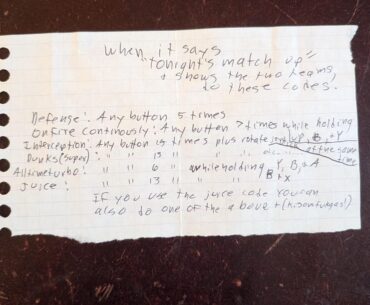 When it says
"tonight's match up"
+ shows the two teams,
do these codes.
Defense: Any button 5 times
Onfire continously: Any button 7 times while holding
Interception: Any button 15 times plus rotate
Dunks (super): " " 13 " at the same time
Alltimeturbo: " " 6 " while holding Y, B, + A
Juice: " " 13 " " " B + X
If you use the juice code You can
also do one of the above +